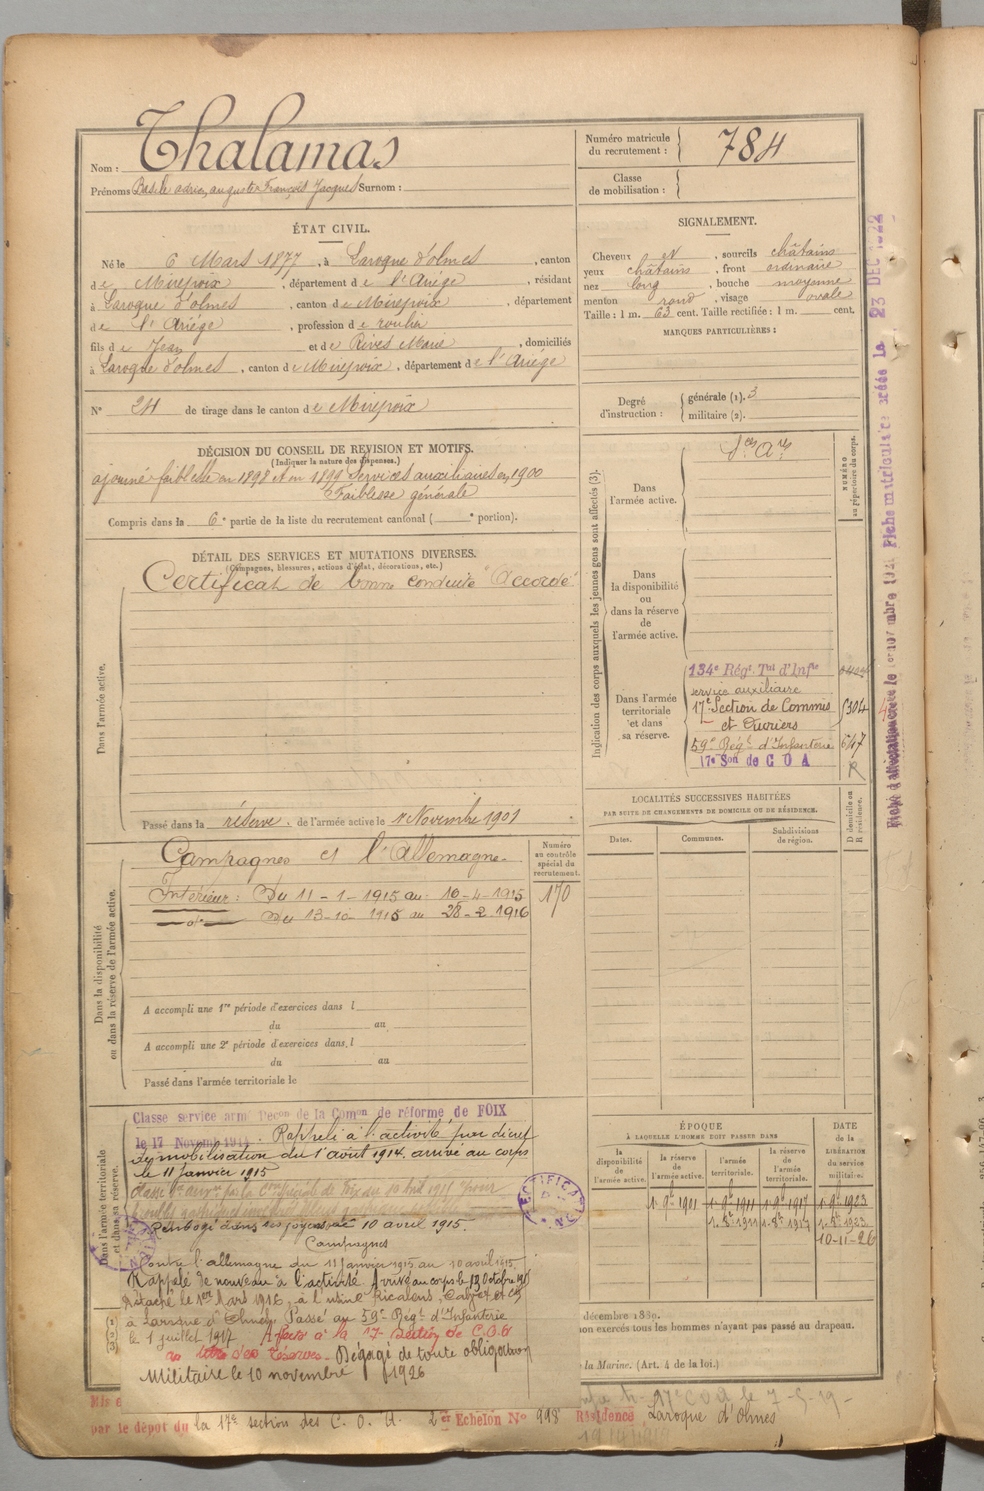 Nom : Thalamas
Prénoms Basile adrien, auguste François Jacques Surnom :
Numéro matricule du recrutement : 784
Classe de mobilisation :
ÉTAT CIVIL.
Né le 6 Mars 1877, à Laroque d'olmes, canton
de Mirepoix, département de l'Ariége, résidant
à Laroque d'olmes, canton de Mirepoix, département
de l'Ariége, profession de roulier
fils de Jean et de Rives Marie, domiciliés
à Laroque d'olmes, canton de Mirepoix, département de l'Ariége
N° 24 de tirage dans le canton de Mirepoix
SIGNALEMENT.
Cheveux et, sourcils châtains
yeux châtains, front ordinaire
nez long, bouche moyenne
menton rond, visage ovale
Taille : 1 m. 63 cent. Taille rectifiée : 1 m. cent.
MARQUES PARTICULIÈRES :
Degré d'instruction : générale (1). 3
militaire (2).
DÉCISION DU CONSEIL DE REVISION ET MOTIFS.
(Indiquer la nature des dispenses.)
ajourné faiblesse en 1898 et en 1899 Services auxiliaires en 1900
Faiblesse générale
Compris dans la 6e partie de la liste du recrutement cantonal ( e portion).
DÉTAIL DES SERVICES ET MUTATIONS DIVERSES.
(Campagnes, blessures, actions d'éclat, décorations, etc.)
Certificat de bonne conduite "Accordé"
Dans l'armée active.
Passé dans la réserve de l'armée active le 1 Novembre 1901
Indication des corps auxquels les jeunes gens sont affectés (3).
NUMÉRO au répertoire du corps.
Dans l'armée active.
Sces Ares
Dans la disponibilité ou dans la réserve de l'armée active.
Dans l'armée territoriale et dans sa réserve.
134e Régt Tal d'Infie
service auxiliaire
17e Section de Commis 5304
et Ouvriers
59e Régt d'Infanterie
17e Son de C O A R
Dans la disponibilité ou dans la réserve de l'armée active.
Campagnes et l'Allemagne
Intérieur : Du 11-1-1915 au 10-4-1915
do Du 13-10-1915 au 28-2-1916
Numéro au contrôle spécial du recrutement.
170
A accompli une 1re période d'exercices dans l
du au
A accompli une 2e période d'exercices dans l
du au
Passé dans l'armée territoriale le
LOCALITÉS SUCCESSIVES HABITÉES
PAR SUITE DE CHANGEMENTS DE DOMICILE OU DE RÉSIDENCE.
Dates. Communes. Subdivisions de région. D domicile ou R résidence.
Dans l'armée territoriale et dans sa réserve.
Classe service armé Décon de la Comon de réforme de FOIX
le 17 Novemb 1914. Rappelé à l'activité par décret
de mobilisation du 1er août 1914. arrivé au corps
le 11 janvier 1915
Renvoyé dans ses foyers le 10 avril 1915.
Campagnes
Contre l'allemagne du 11 janvier 1915 au 10 avril 1915
Rappelé de nouveau à l'activité Arrivé au corps le 13 Octobre 1915
Détaché le 1er Mars 1916, à l'usine Ricalens,
à Laroque d'Olmes. Passé au 59e Régt d'Infanterie
le 1 juillet 1917 Affecté à la 17e Section de C.O.A
au titre des réserves. Dégagé de toute obligation
Militaire le 10 novembre 1926
RECTIFICATION
ÉPOQUE
À LAQUELLE L'HOMME DOIT PASSER DANS
la disponibilité de l'armée active. la réserve de l'armée active. l'armée territoriale. la réserve de l'armée territoriale.
DATE de la LIBÉRATION du service militaire.
1. 9e 1901 1. 9e 1911 1. 9e 1917 1. 9e 1923
1. 8e 1911 1. 8e 1917 1. 8e 1923
10-11-26
décembre 1889.
non exercés tous les hommes n'ayant pas passé au drapeau.
la Marine. (Art. 4 de la loi.)
par le dépôt du la 17e section des C. O. A. 2e Echelon N° 998 Résidence Laroque d'Olmes
Fiche matriculaire créée le 23 DEC 1922